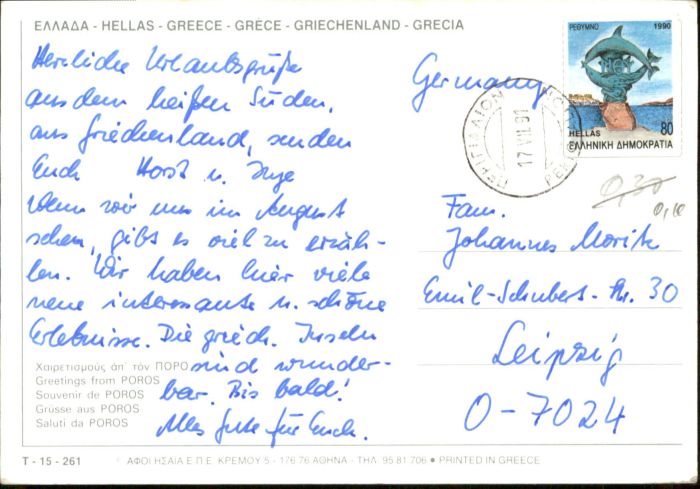 ΕΛΛΑΔΑ - HELLAS - GREECE - GRÈCE - GRIECHENLAND - GRECIA
Herzliche Urlaubsgrüße
aus dem heißen Süden,
aus Griechenland, senden
Euch Horst u. Inge
Wenn wir uns im August
sehen, gibt es viel zu erzäh-
len. Wir haben hier viele
neue interessante u. schöne
Erlebnisse. Die griech. Inseln
sind wunder-
bar. Bis bald!
Alles Gute für Euch.
Χαιρετισμούς ἀπ' τόν ΠΟΡΟ
Greetings from POROS
Souvenir de POROS
Grüsse aus POROS
Saluti da POROS
T - 15 - 261
ΑΦΟΙ ΗΣΑΪΑ Ε.Π.Ε. ΚΡΕΜΟΥ 5 - 176 76 ΑΘΗΝΑ - ΤΗΛ. 95 81 706 • PRINTED IN GREECE
Germany
17 VII. 91
ΡΕΘΥΜΝΟ 1990
HELLAS 80
ΕΛΛΗΝΙΚΗ ΔΗΜΟΚΡΑΤΙΑ
0,30
0,10
Fam.
Johannes Moritz
Emil-Schubert-Str. 30
Leipzig
O-7024